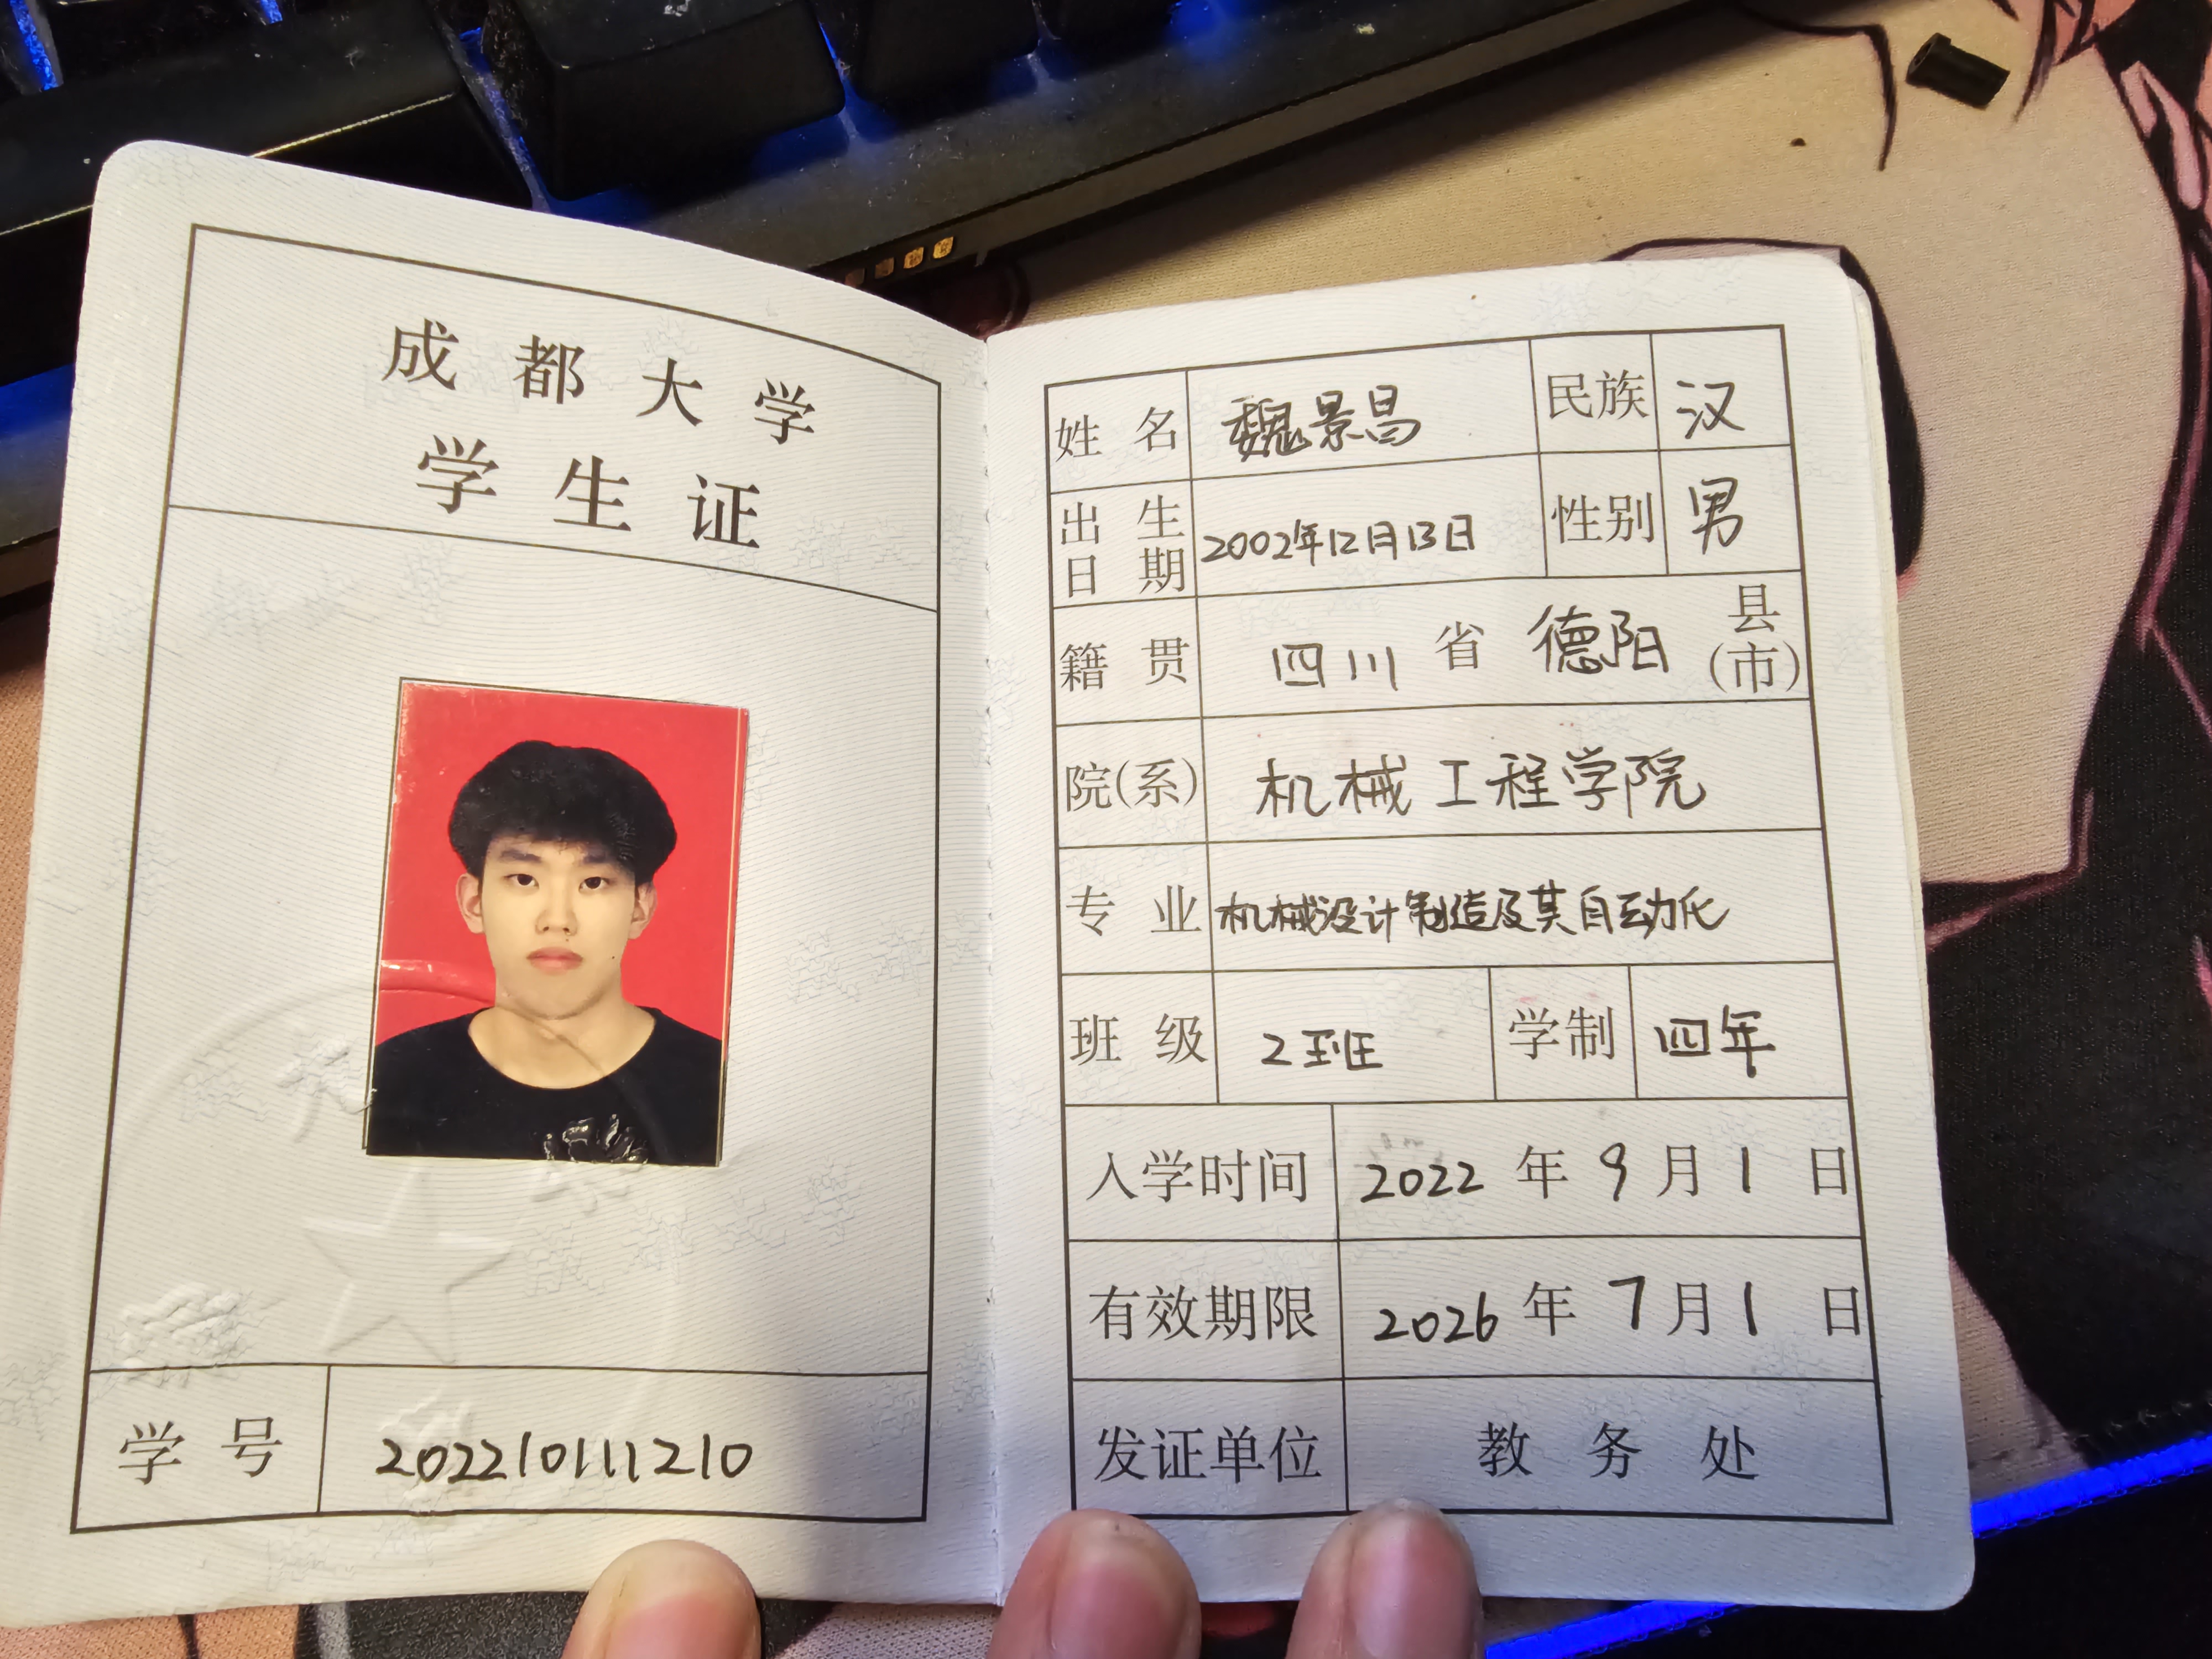 成都大学
学生证
学号 202210111210
姓名 魏景昌 民族 汉
出生日期 2002年12月13日 性别 男
籍贯 四川省德阳县(市)
院(系) 机械工程学院
专业 机械设计制造及其自动化
班级 2班 学制 四年
入学时间 2022年9月1日
有效期限 2026年7月1日
发证单位 教务处